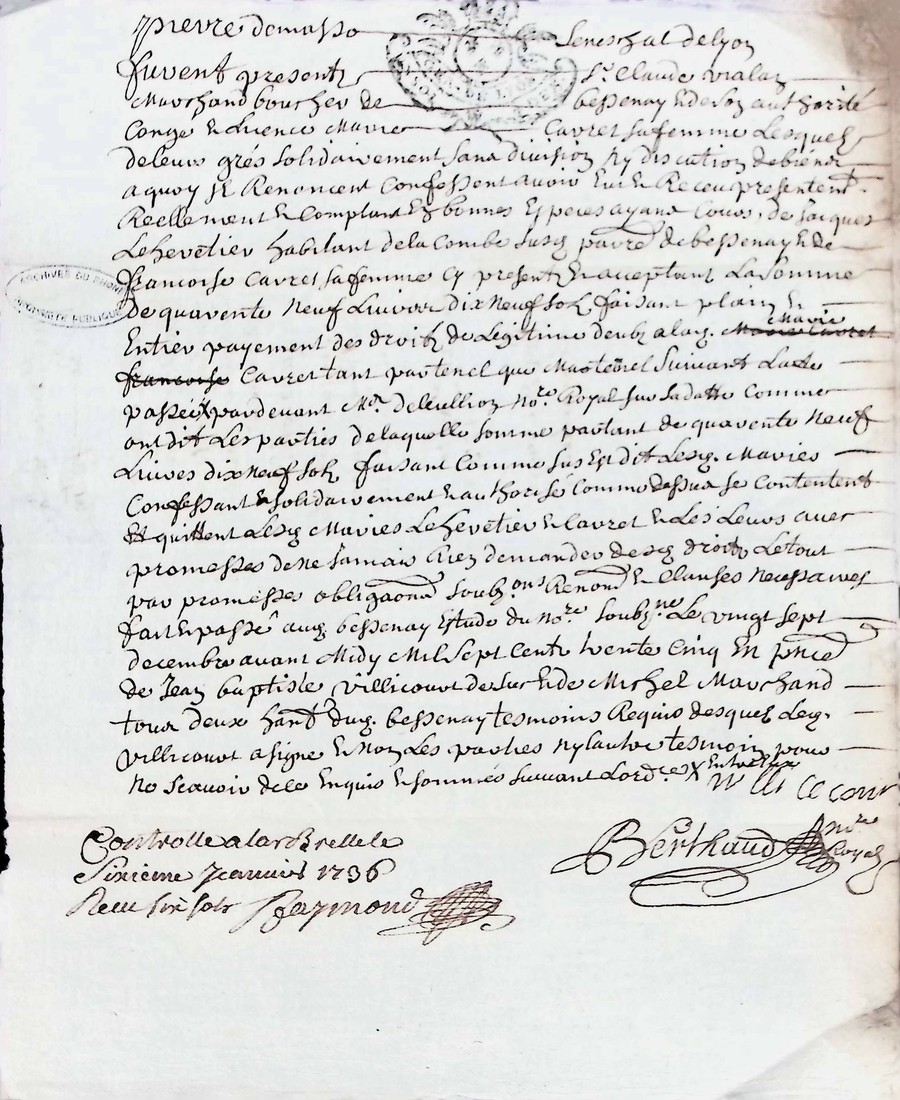 pierre demasso Seneschal de Lyon
furent presents Sr. Claude vialay
Marchand boucher de bessenay & de son authorité
Congé & Licence Marie Cavret sa femme Lesquels
de leurs grés solidairement sans division ny discution de biens
a quoy ils Renoncent Confessent avoir Eu & Receu presentemt.
Reellement & Comptant En bonnes Especes ayans Cours, de Jacques
Lehevetier habitant de la Combe susd parre de bessenay & de
francoise Cavret sa femme Cy presents & acceptant La Somme
de quarente Neuf Livres dix Neuf sols faisant plain &
Entier payement des droits de Legitime deubs a lad. Marie
Cavret tant paternel que Maternel Suivant Lacte
passé x pardevant Me. deleullion nore. Royal sur sa datte Comme
ont dit Les parties de laquelle somme partant de quarente Neuf
Livres dix Neuf sols faisant Comme sus Est dit Lesd. Maries
Confessant & solidairement & authorisé Comme dessus se Contentent
Et quittent Lesd Maries Lehevetier & Cavret & Les Leurs avec
promesses de ne Jamais Rien demander desd droits Le tout
par promesses obligaons Soubzons Renonons & Clauses Necessaires
fait & passé aud. bessenay Estude du nore. soubzne Le vingt sept
decembre avant Midy Mil Sept Cents trente Cinq En pnce
de Jean baptiste Villicourt de Sur & de Michel Marchand
tous deux hants dud. bessenay tesmoins Requis desquels Led.
Villicourt a signé & Non Les parties ny lautre tesmoin pour
No Scavoir de ce Enquis & sommés suivant Lordce x Entre Eux
Villicourt
Berthaud nore Royal
Controlle a larbrelle le
Sixieme Janvier 1736
Receu six sols Raymond
ARCHIVES DU RHONE